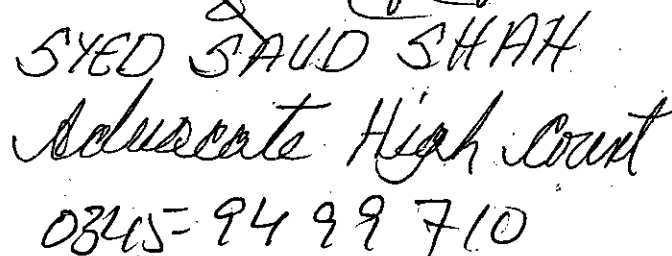 SYED SAUD SHAH
Advocate High Court
0345-9499710